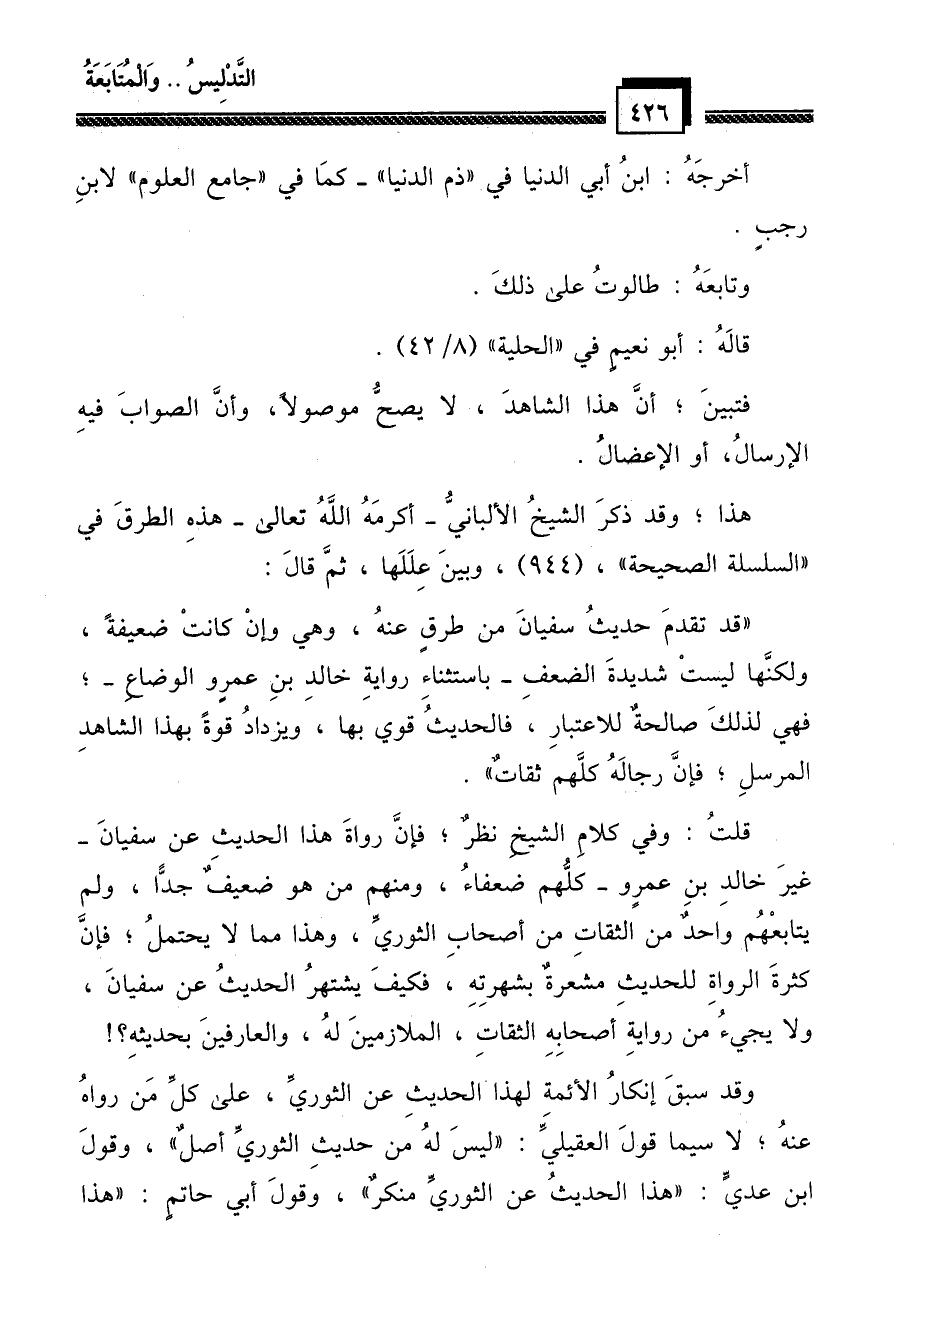 التَّدْلِيسُ .. وَالْمُتَابَعَةُ
٤٢٦
أخرجَهُ : ابنُ أبي الدنيا في «ذم الدنيا» ـ كمَا في «جامع العلوم» لابنِ
رجبٍ .
وتابعَهُ : طالوتُ على ذلكَ .
قالَهُ : أبو نعيمٍ في «الحلية» (٨/ ٤٢) .
فتبينَ ؛ أنَّ هذا الشاهدَ ، لا يصحُّ موصولاً، وأنَّ الصوابَ فيهِ
الإرسالُ، أو الإعضالُ .
هذا ؛ وقد ذكرَ الشيخُ الألبانيُّ ـ أكرمَهُ اللَّهُ تعالى ـ هذهِ الطرقَ في
«السلسلة الصحيحة» ، (٩٤٤) ، وبينَ عِلَلَها ، ثمَّ قالَ :
«قد تقدمَ حديثُ سفيانَ من طرقٍ عنهُ ، وهي وإنْ كانتْ ضعيفةً ،
ولكنَّها ليستْ شديدةَ الضعفِ ـ باستثناءِ روايةِ خالدِ بنِ عمرٍو الوضاعِ ـ ؛
فهي لذلكَ صالحةٌ للاعتبارِ ، فالحديثُ قوي بها ، ويزدادُ قوةً بهذا الشاهدِ
المرسلِ ؛ فإنَّ رجالَهُ كلَّهم ثقاتٌ» .
قلتُ : وفي كلامِ الشيخِ نظرٌ ؛ فإنَّ رواةَ هذا الحديثِ عن سفيانَ ـ
غيرَ خالدِ بنِ عمرٍو ـ كلُّهم ضعفاءُ ، ومنهم من هو ضعيفٌ جدًّا ، ولم
يتابعْهُم واحدٌ من الثقاتِ من أصحابِ الثوريِّ ، وهذا مما لا يحتملُ ؛ فإنَّ
كثرةَ الرواةِ للحديثِ مشعرةٌ بشهرتِهِ ، فكيفَ يشتهرُ الحديثُ عن سفيانَ ،
ولا يجيءُ من روايةِ أصحابِهِ الثقاتِ ، الملازمينَ لهُ ، والعارفينَ بحديثِهِ؟!
وقد سبقَ إنكارُ الأئمةِ لهذا الحديثِ عن الثوريِّ ، على كلِّ مَن رواهُ
عنهُ ؛ لا سيما قولَ العقيليِّ : «ليسَ لهُ من حديثِ الثوريِّ أصلٌ» ، وقولَ
ابن عديٍّ : «هذا الحديثُ عن الثوريِّ منكرٌ» ، وقولَ أبي حاتمٍ : «هذا